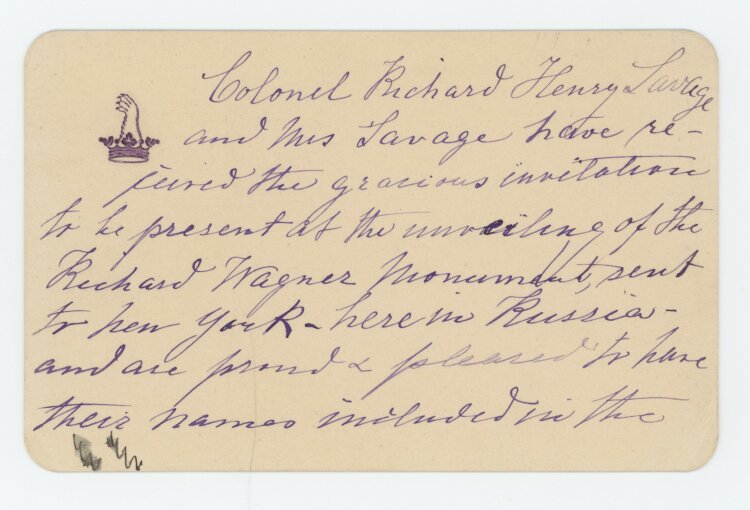 Colonel Richard Henry Savage
and Mrs Savage have re-
ceived the gracious invitation
to be present at the unveiling of the
Richard Wagner Monument, sent
to New York - here in Russia -
and are proud & pleased to have
their names included in the